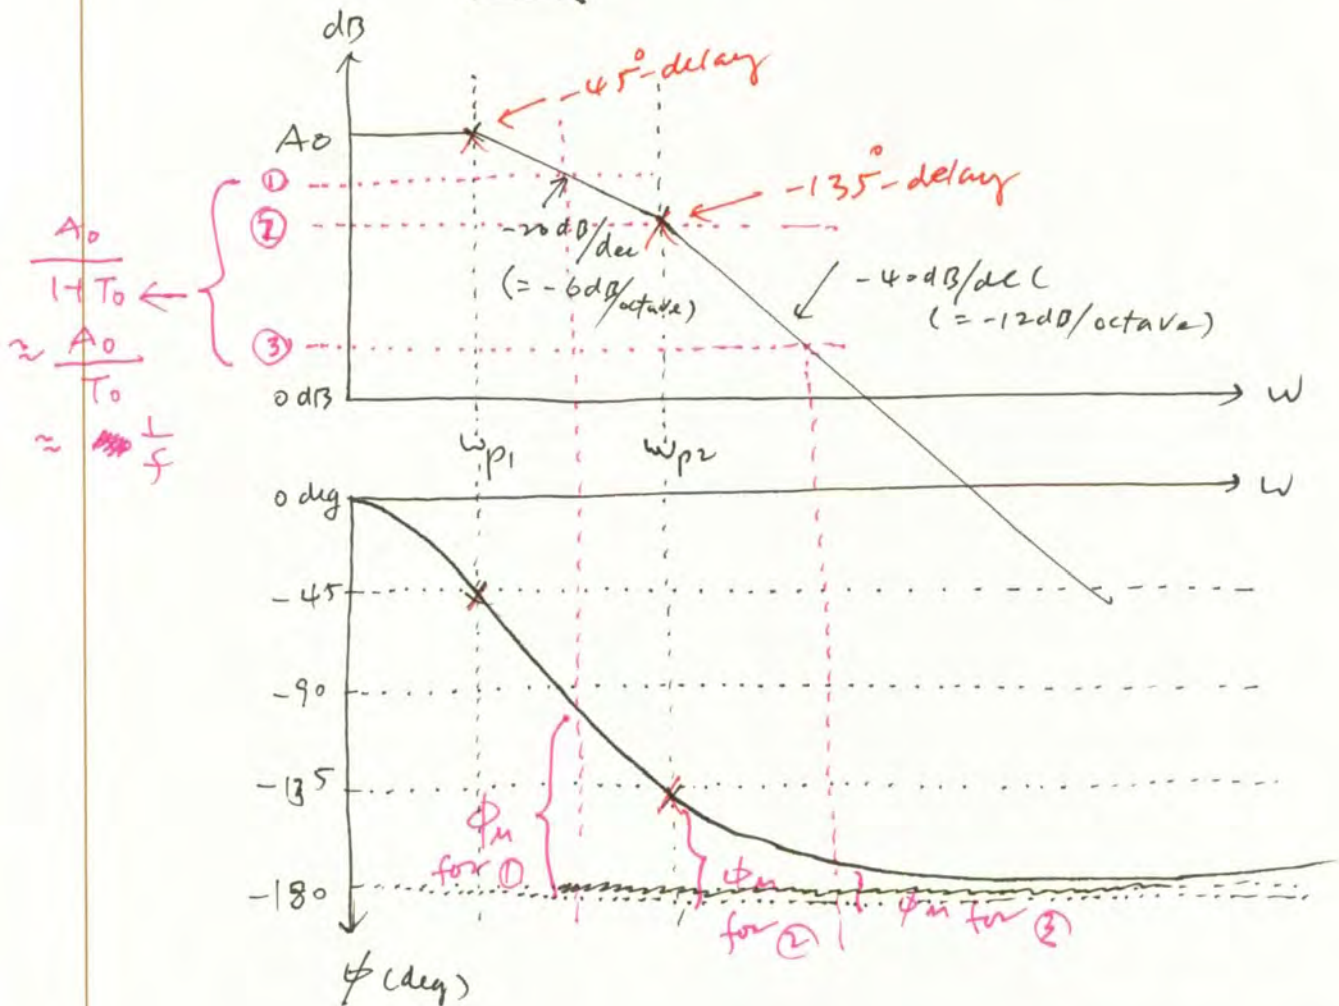 dB
-45°-delay
A0
①
-135°-delay
②
-20dB/dec
(= -6dB/octave)
-40dB/dec
(= -12dB/octave)
A0
1+T0
≈ A0
T0
≈ 1
f
③
0 dB
ω
ωp1
ωp2
0 deg
ω
-45
-90
-135
ϕM
for ①
-180
ϕM
for ②
ϕM for ③
ϕ (deg)